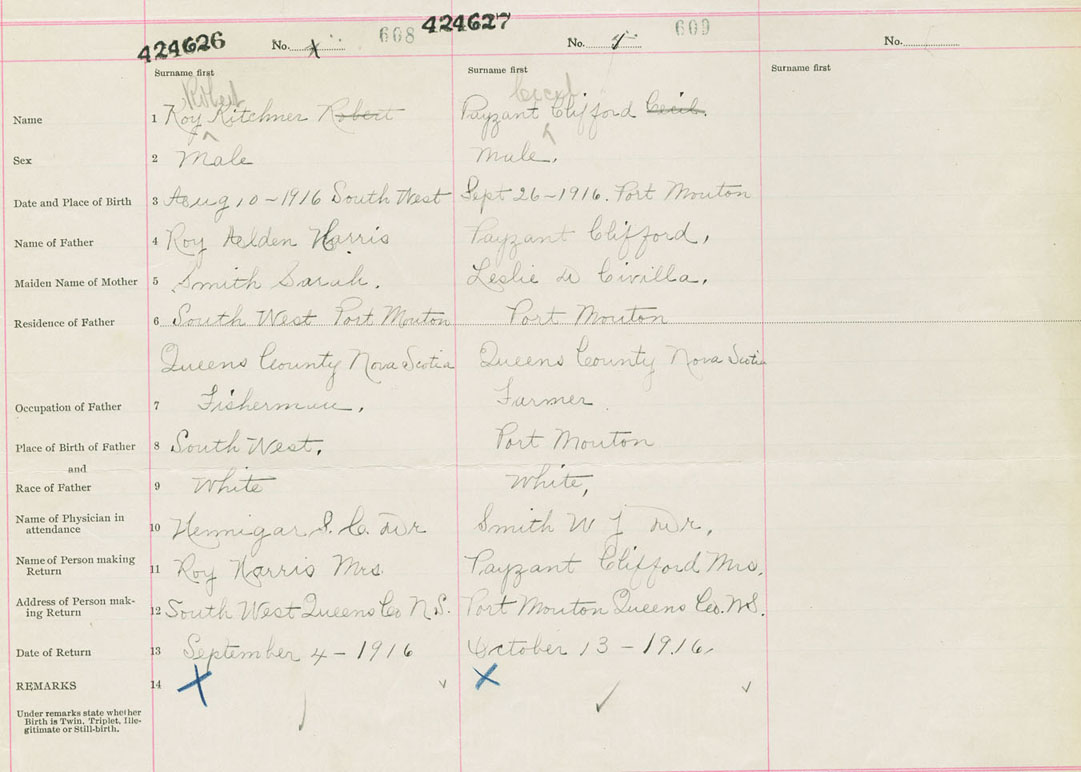 424626 No. x 608 424627 No. 609 No.
Surname first Surname first Surname first
Robert Cecil
Name 1 Roy Kitchner Robert Payzant Clifford Cecil.
Sex 2 Male Male.
Date and Place of Birth 3 Aug 10-1916 South West Sept 26-1916. Port Mouton
Name of Father 4 Roy Aelden Harris Payzant Clifford,
Maiden Name of Mother 5 Smith Sarah. Leslie Civilla.
Residence of Father 6 South West Port Mouton Port Mouton
Queens County Nova Scotia Queens County Nova Scotia
Occupation of Father 7 Fisherman, Farmer
Place of Birth of Father 8 South West, Port Mouton
and
Race of Father 9 White White,
Name of Physician in
attendance 10 Hennigar S. C. Smith W J
Name of Person making
Return 11 Roy Harris Mrs Payzant Clifford Mrs.
Address of Person mak-
ing Return 12 South West Queens Co N.S. Port Mouton Queens Co. N.S.
Date of Return 13 September 4-1916 October 13-1916.
REMARKS 14 X X
Under remarks state whether
Birth is Twin, Triplet, Ille-
gitimate or Still-birth.